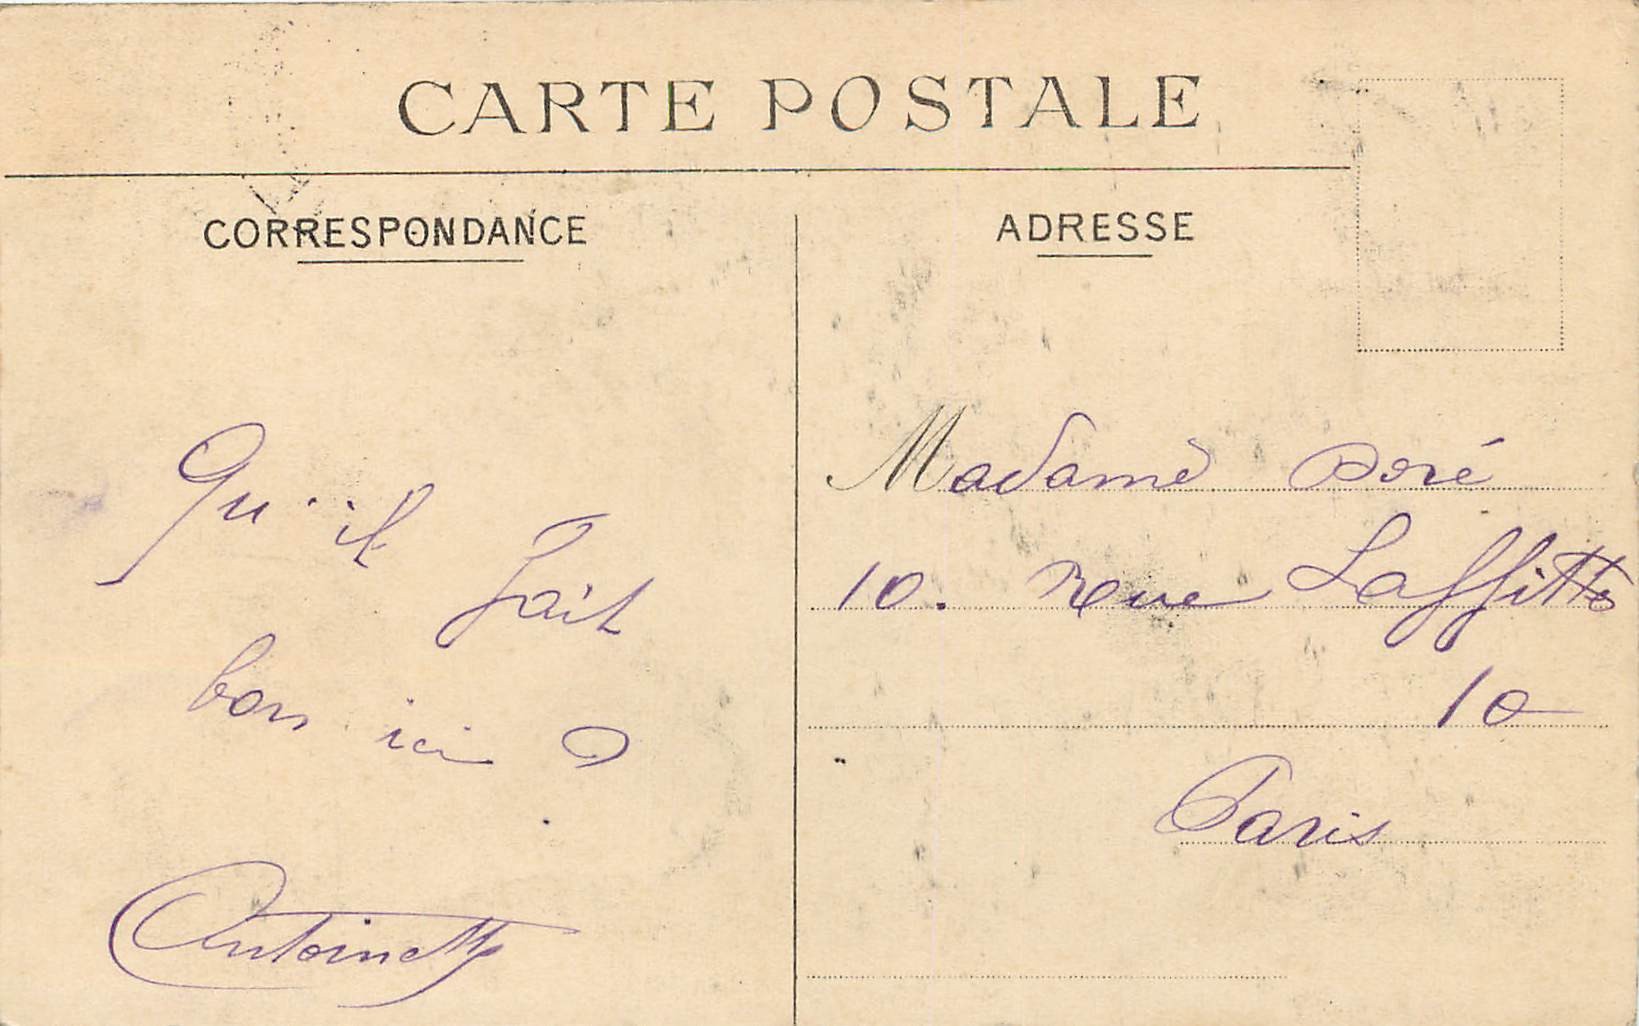 CARTE POSTALE
CORRESPONDANCE
Qu'il fait
bon ici ?
Antoinette
ADRESSE
Madame Doré
10. Rue Laffitte
10
Paris